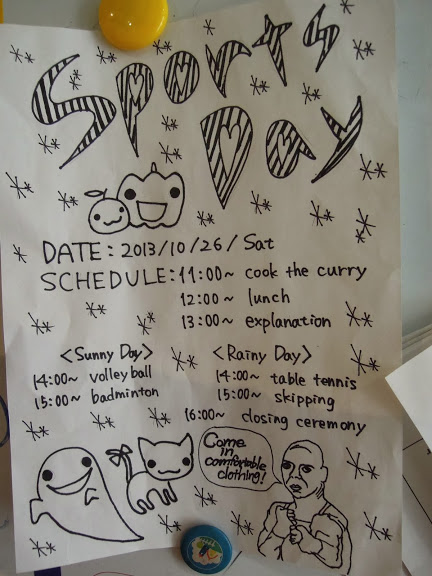 Sports
Day
DATE: 2013/10/26/Sat
SCHEDULE: 11:00~ cook the curry
12:00~ lunch
13:00~ explanation
<Sunny Day>
14:00~ volleyball
15:00~ badminton
<Rainy Day>
14:00~ table tennis
15:00~ skipping
16:00~ closing ceremony
Come
in
comfortable
clothing!